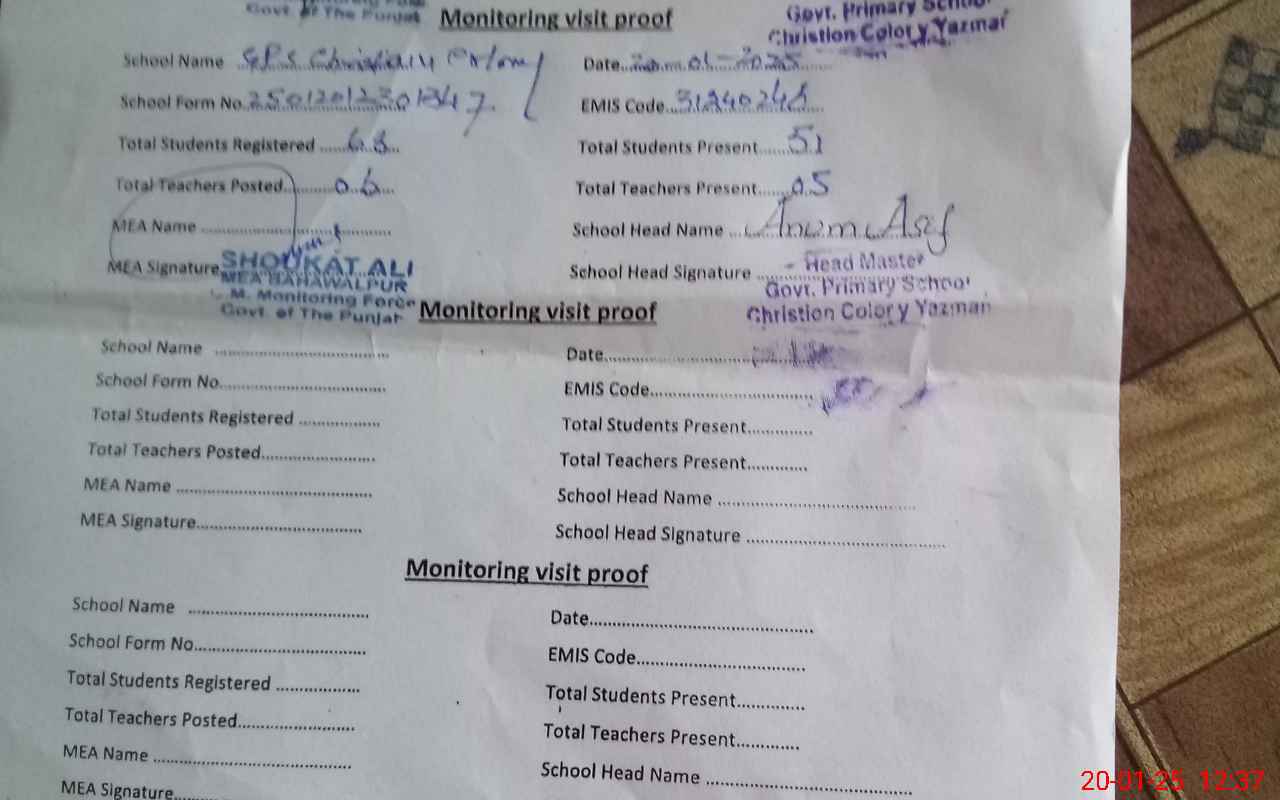 Govt. of The Punjab
Monitoring visit proof
Govt. Primary School
Christion Colory Yazman
School Name GPS Christian Colony
Date 20-01-2025
School Form No. 25012012301347
EMIS Code 31240248
Total Students Registered 63
Total Students Present 51
Total Teachers Posted 06
Total Teachers Present 05
MEA Name
School Head Name Anum Asif
MEA Signature SHOUKAT ALI
MEA BAHAWALPUR
C.M. Monitoring Force
Govt. of The Punjab
School Head Signature
Head Master
Govt. Primary School
Christion Colory Yazman
Monitoring visit proof
School Name
Date
School Form No.
EMIS Code
Total Students Registered
Total Students Present
Total Teachers Posted
Total Teachers Present
MEA Name
School Head Name
MEA Signature
School Head Signature
Monitoring visit proof
School Name
Date
School Form No.
EMIS Code
Total Students Registered
Total Students Present
Total Teachers Posted
Total Teachers Present
MEA Name
School Head Name
MEA Signature
20-01-25 12:37